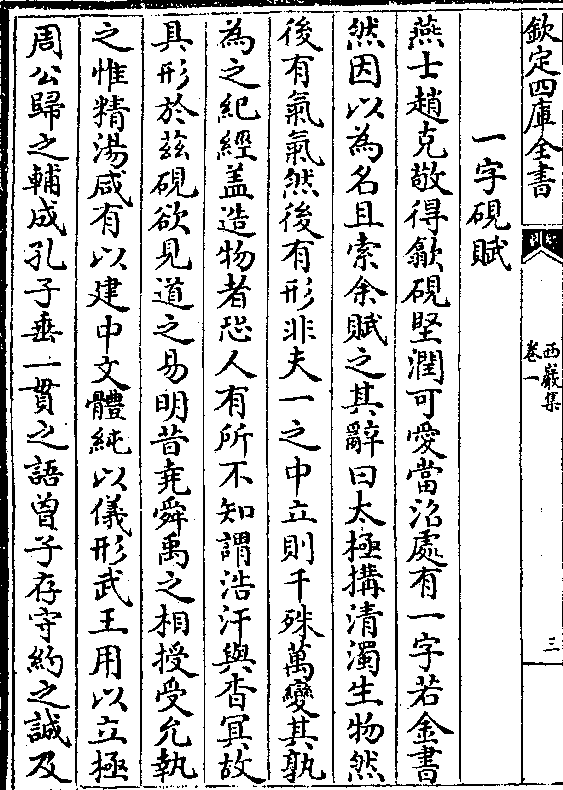 欽定四庫全書
西巖集
卷一
三
一字硯賦
燕士趙克敬得歙硯堅潤可愛當沼處有一字若金書
然因以為名且索余賦之其辭曰太極搆清濁生物然
後有氣氣然後有形非夫一之中立則千殊萬變其孰
為之紀經盖造物者恐人有所不知謂浩汗與杳冥故
具形於兹硯欲見道之易明昔堯舜禹之相授受允執
之惟精湯咸有以建中文體純以儀形武王用以立極
周公歸之輔成孔子垂一貫之語曾子存守約之誠及